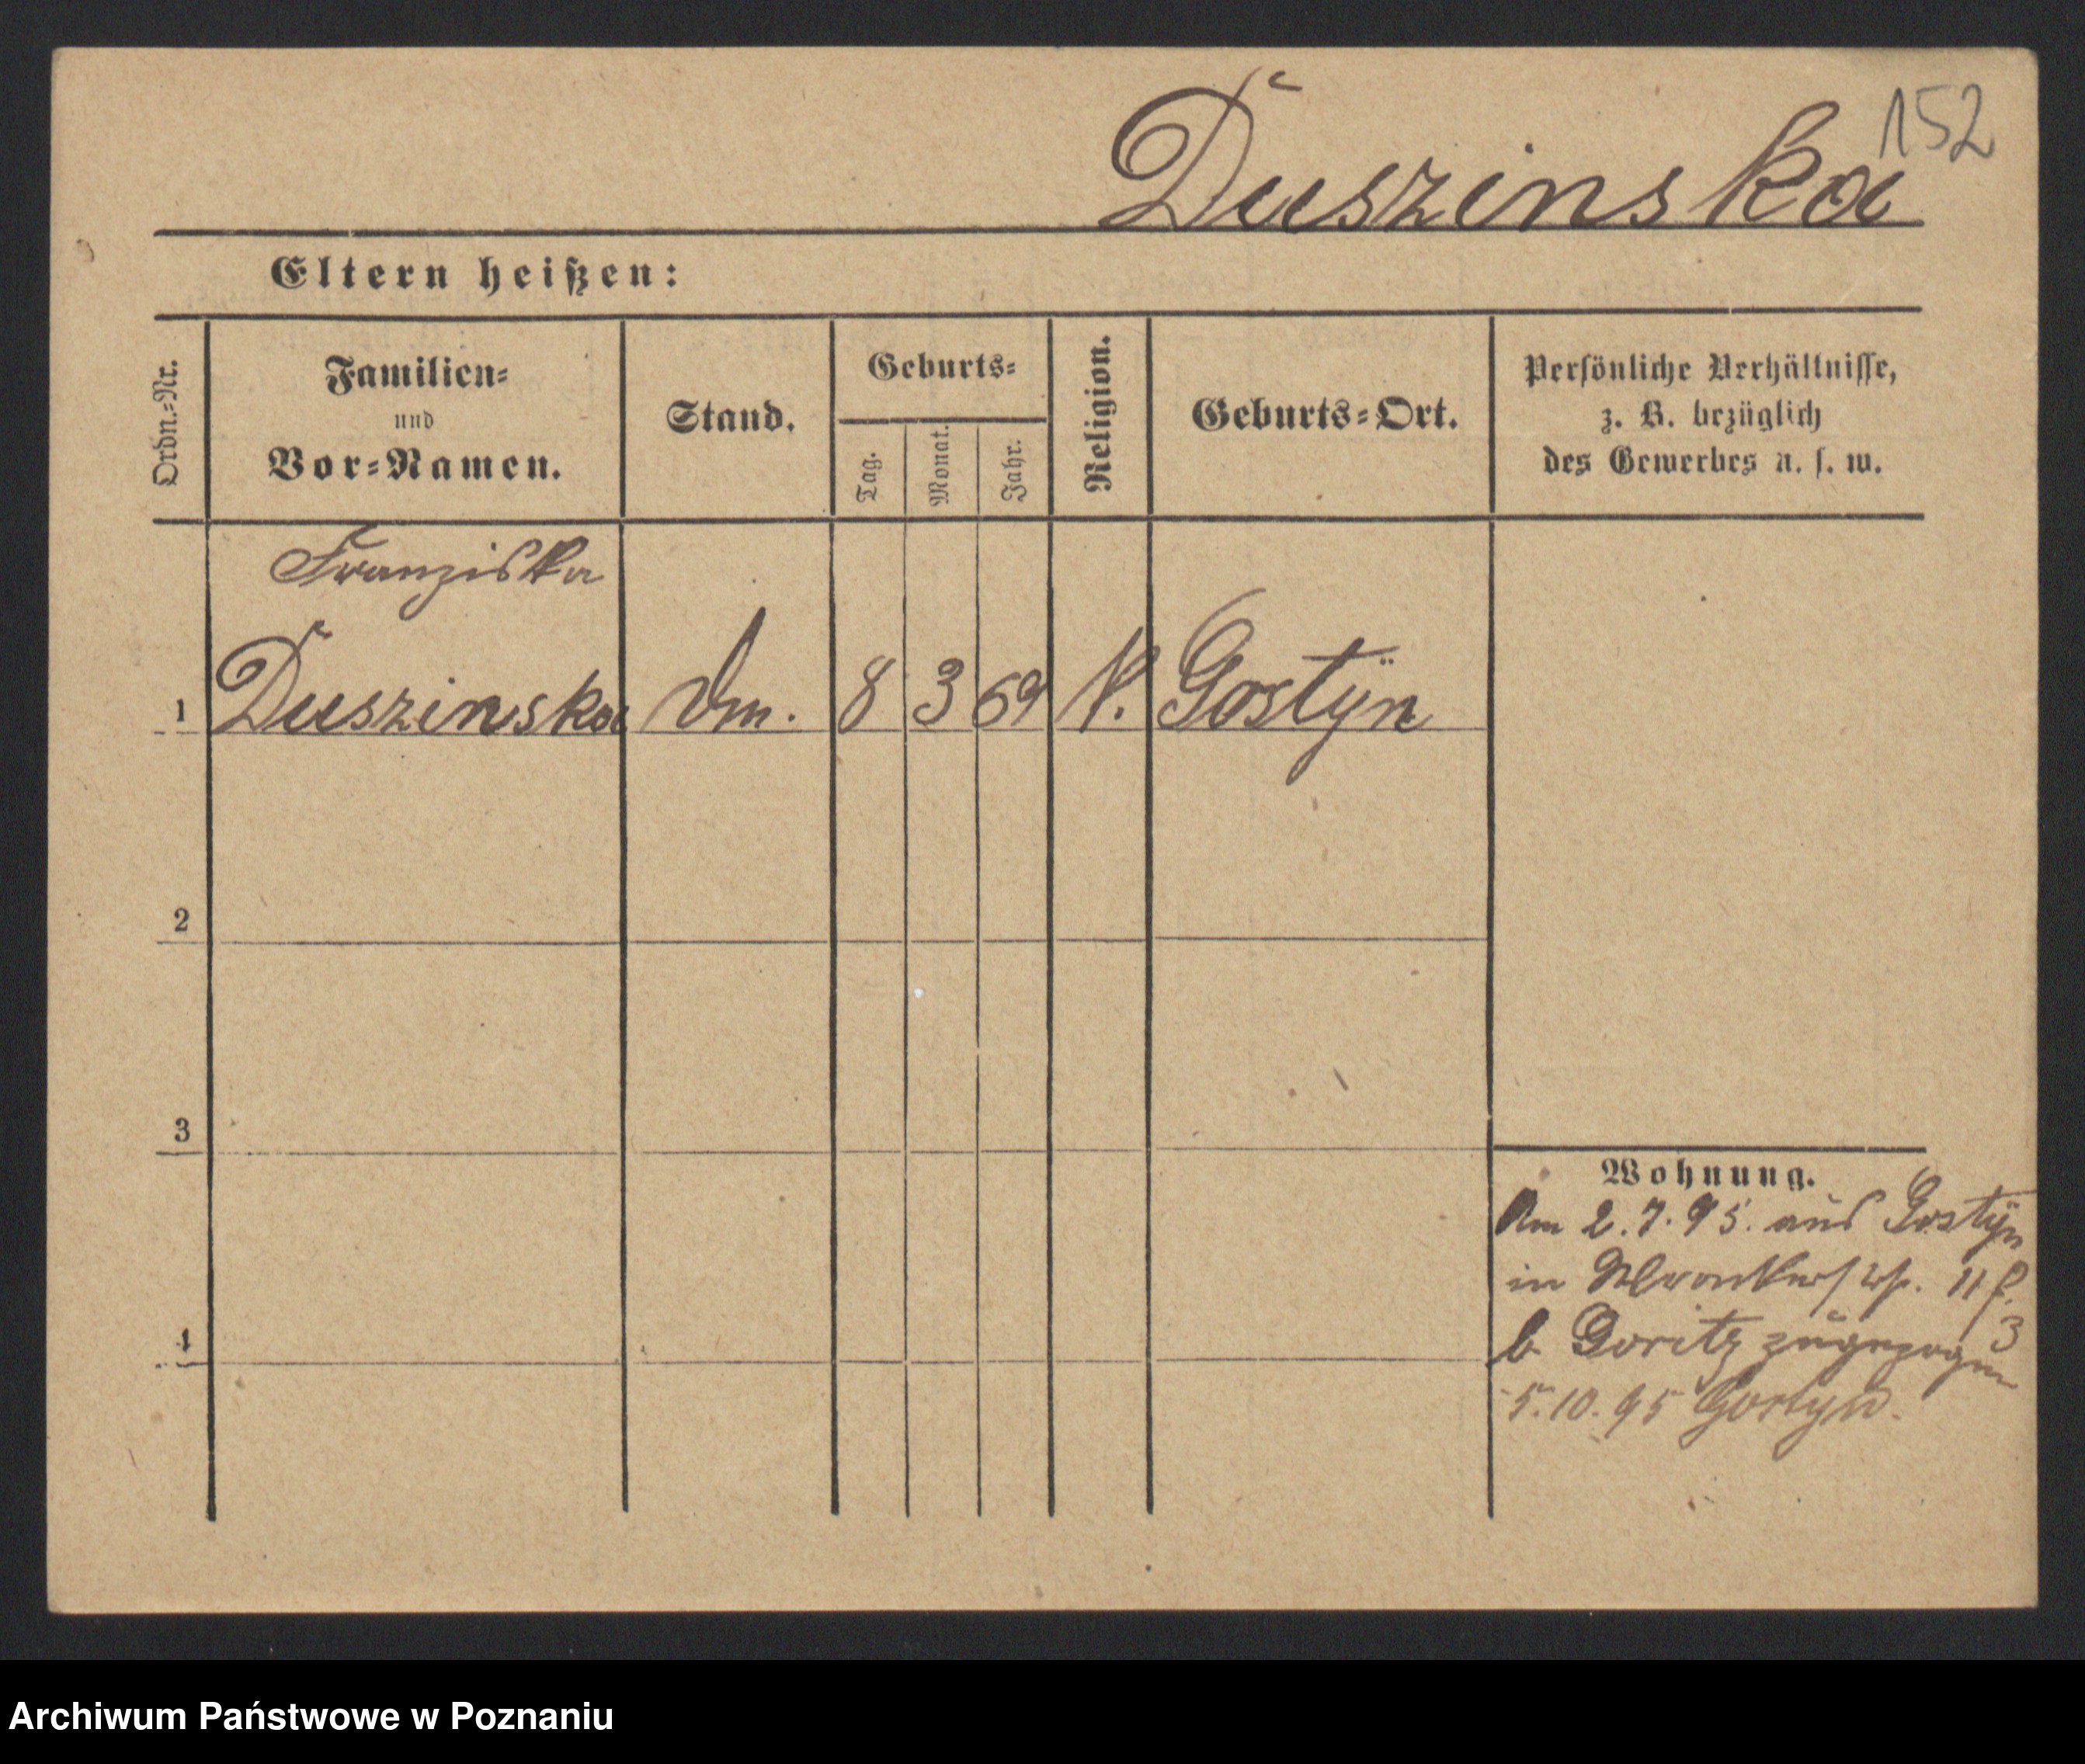 152
Duszinska
Eltern heißen:
Ordn.-Nr.
Familien-
und
Vor-Namen.
Stand.
Geburts-
Tag.
Monat.
Jahr.
Religion.
Geburts-Ort.
Persönliche Verhältnisse,
z. B. bezüglich
des Gewerbes u. s. w.
Franziska
1 Duszinska 8 3 69 Gostÿn
2
3
4
Wohnung.
Am 2.7.95. aus Gostÿn
in 11
b Goritz zugezogen
5.10.95 Gostyn.
Archiwum Państwowe w Poznaniu